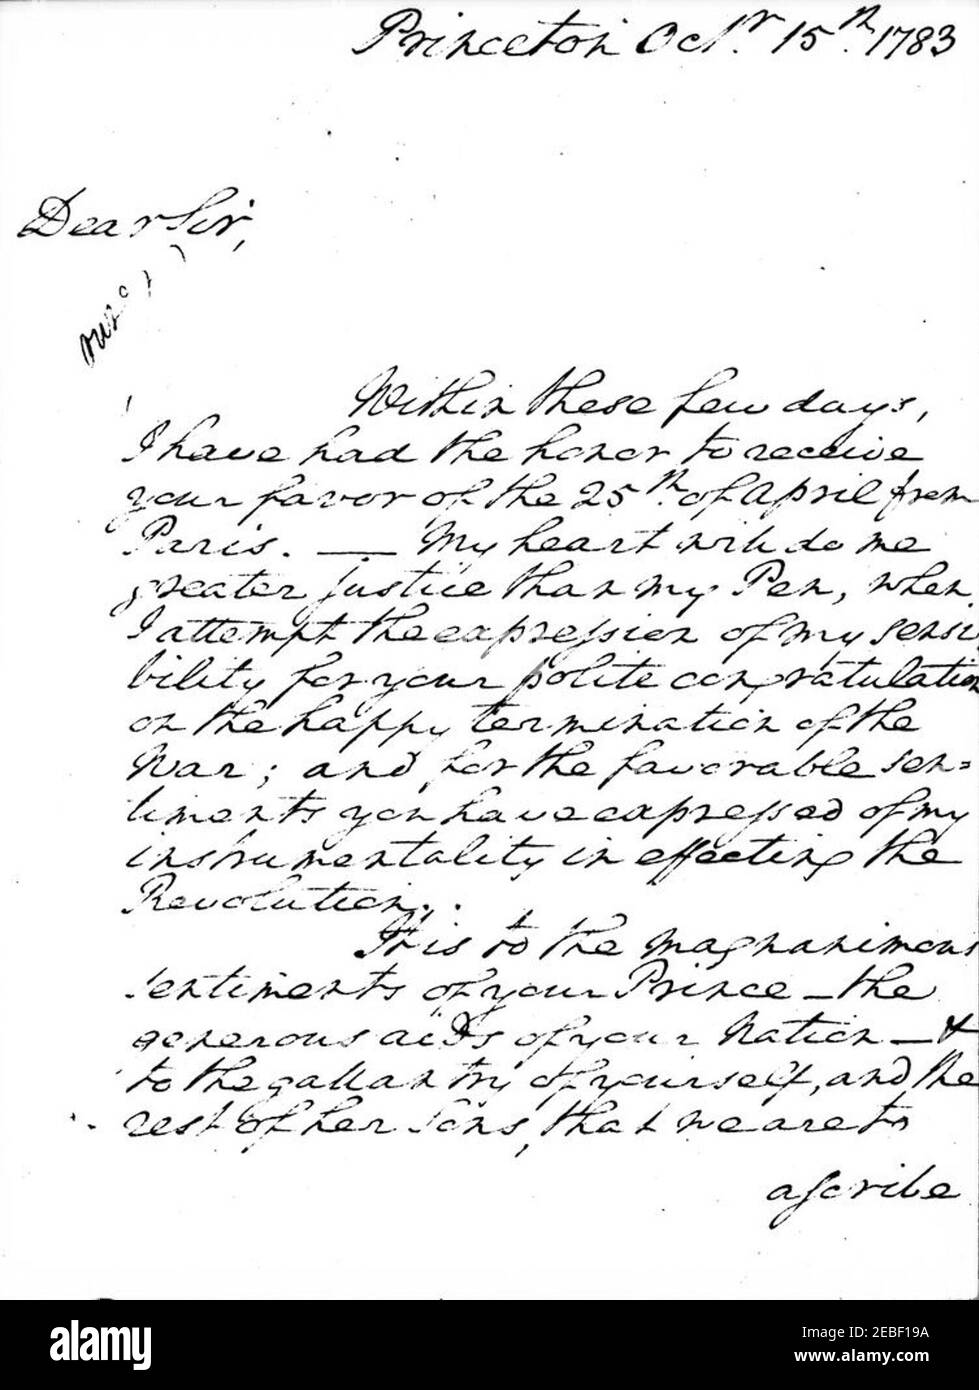 Princeton Octr. 15th. 1783
Dear Sir,
Within these few days,
I have had the honor to receive
your favor of the 25th. of April from
Paris. — My heart will do me
greater justice than my Pen, when
I attempt the expression of my sensi
bility for your polite congratulation
on the happy termination of the
War; and for the favorable sen=
timents you have expressed of my
instrumentality in effecting the
Revolution.
It is to the magnanimous
sentiments of your Prince — the
generous aids of your Nation — &
to the gallantry of yourself, and the
rest of her Sons, that we are to
ascribe
alamy
Image ID: 2EBF19A
www.alamy.com